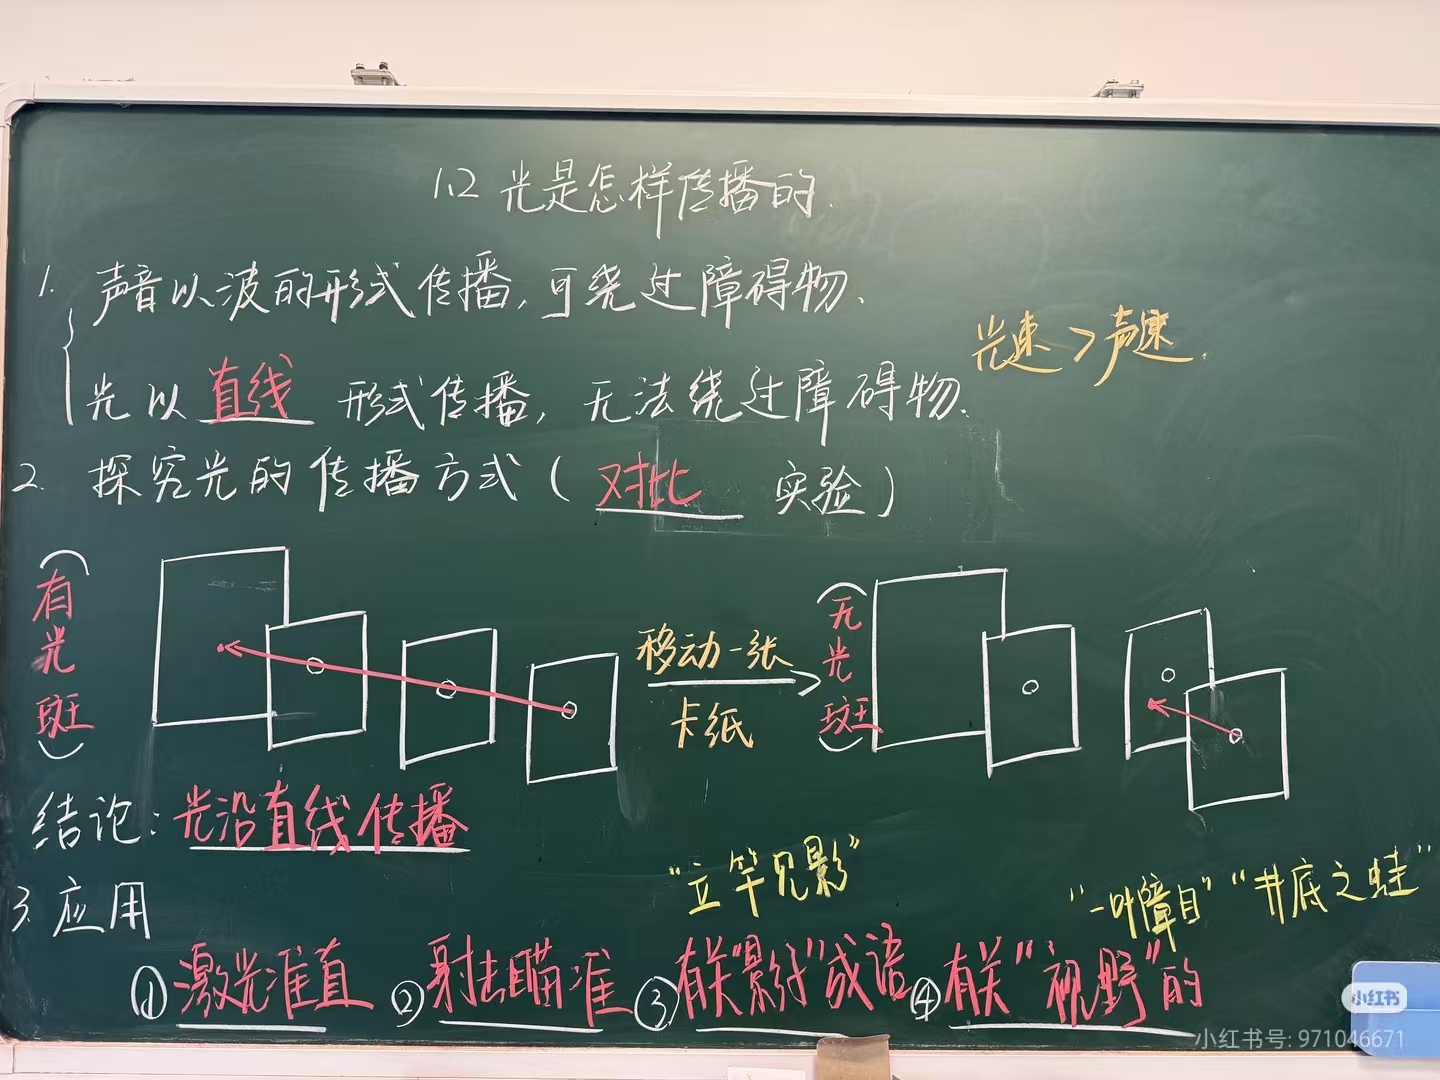 1.2 光是怎样传播的.
1. 声音以波的形式传播,可绕过障碍物.
光以 直线 形式传播, 无法绕过障碍物.
光速>声速.
2. 探究光的传播方式( 对比 实验)
(有光斑)
移动一张
卡纸
(无光斑)
结论:光沿直线传播
3. 应用
“立竿见影”
“一叶障目” “井底之蛙”
①激光准直 ②射击瞄准 ③有关“影子”成语 ④有关“视野”的
小红书
小红书号: 971046671